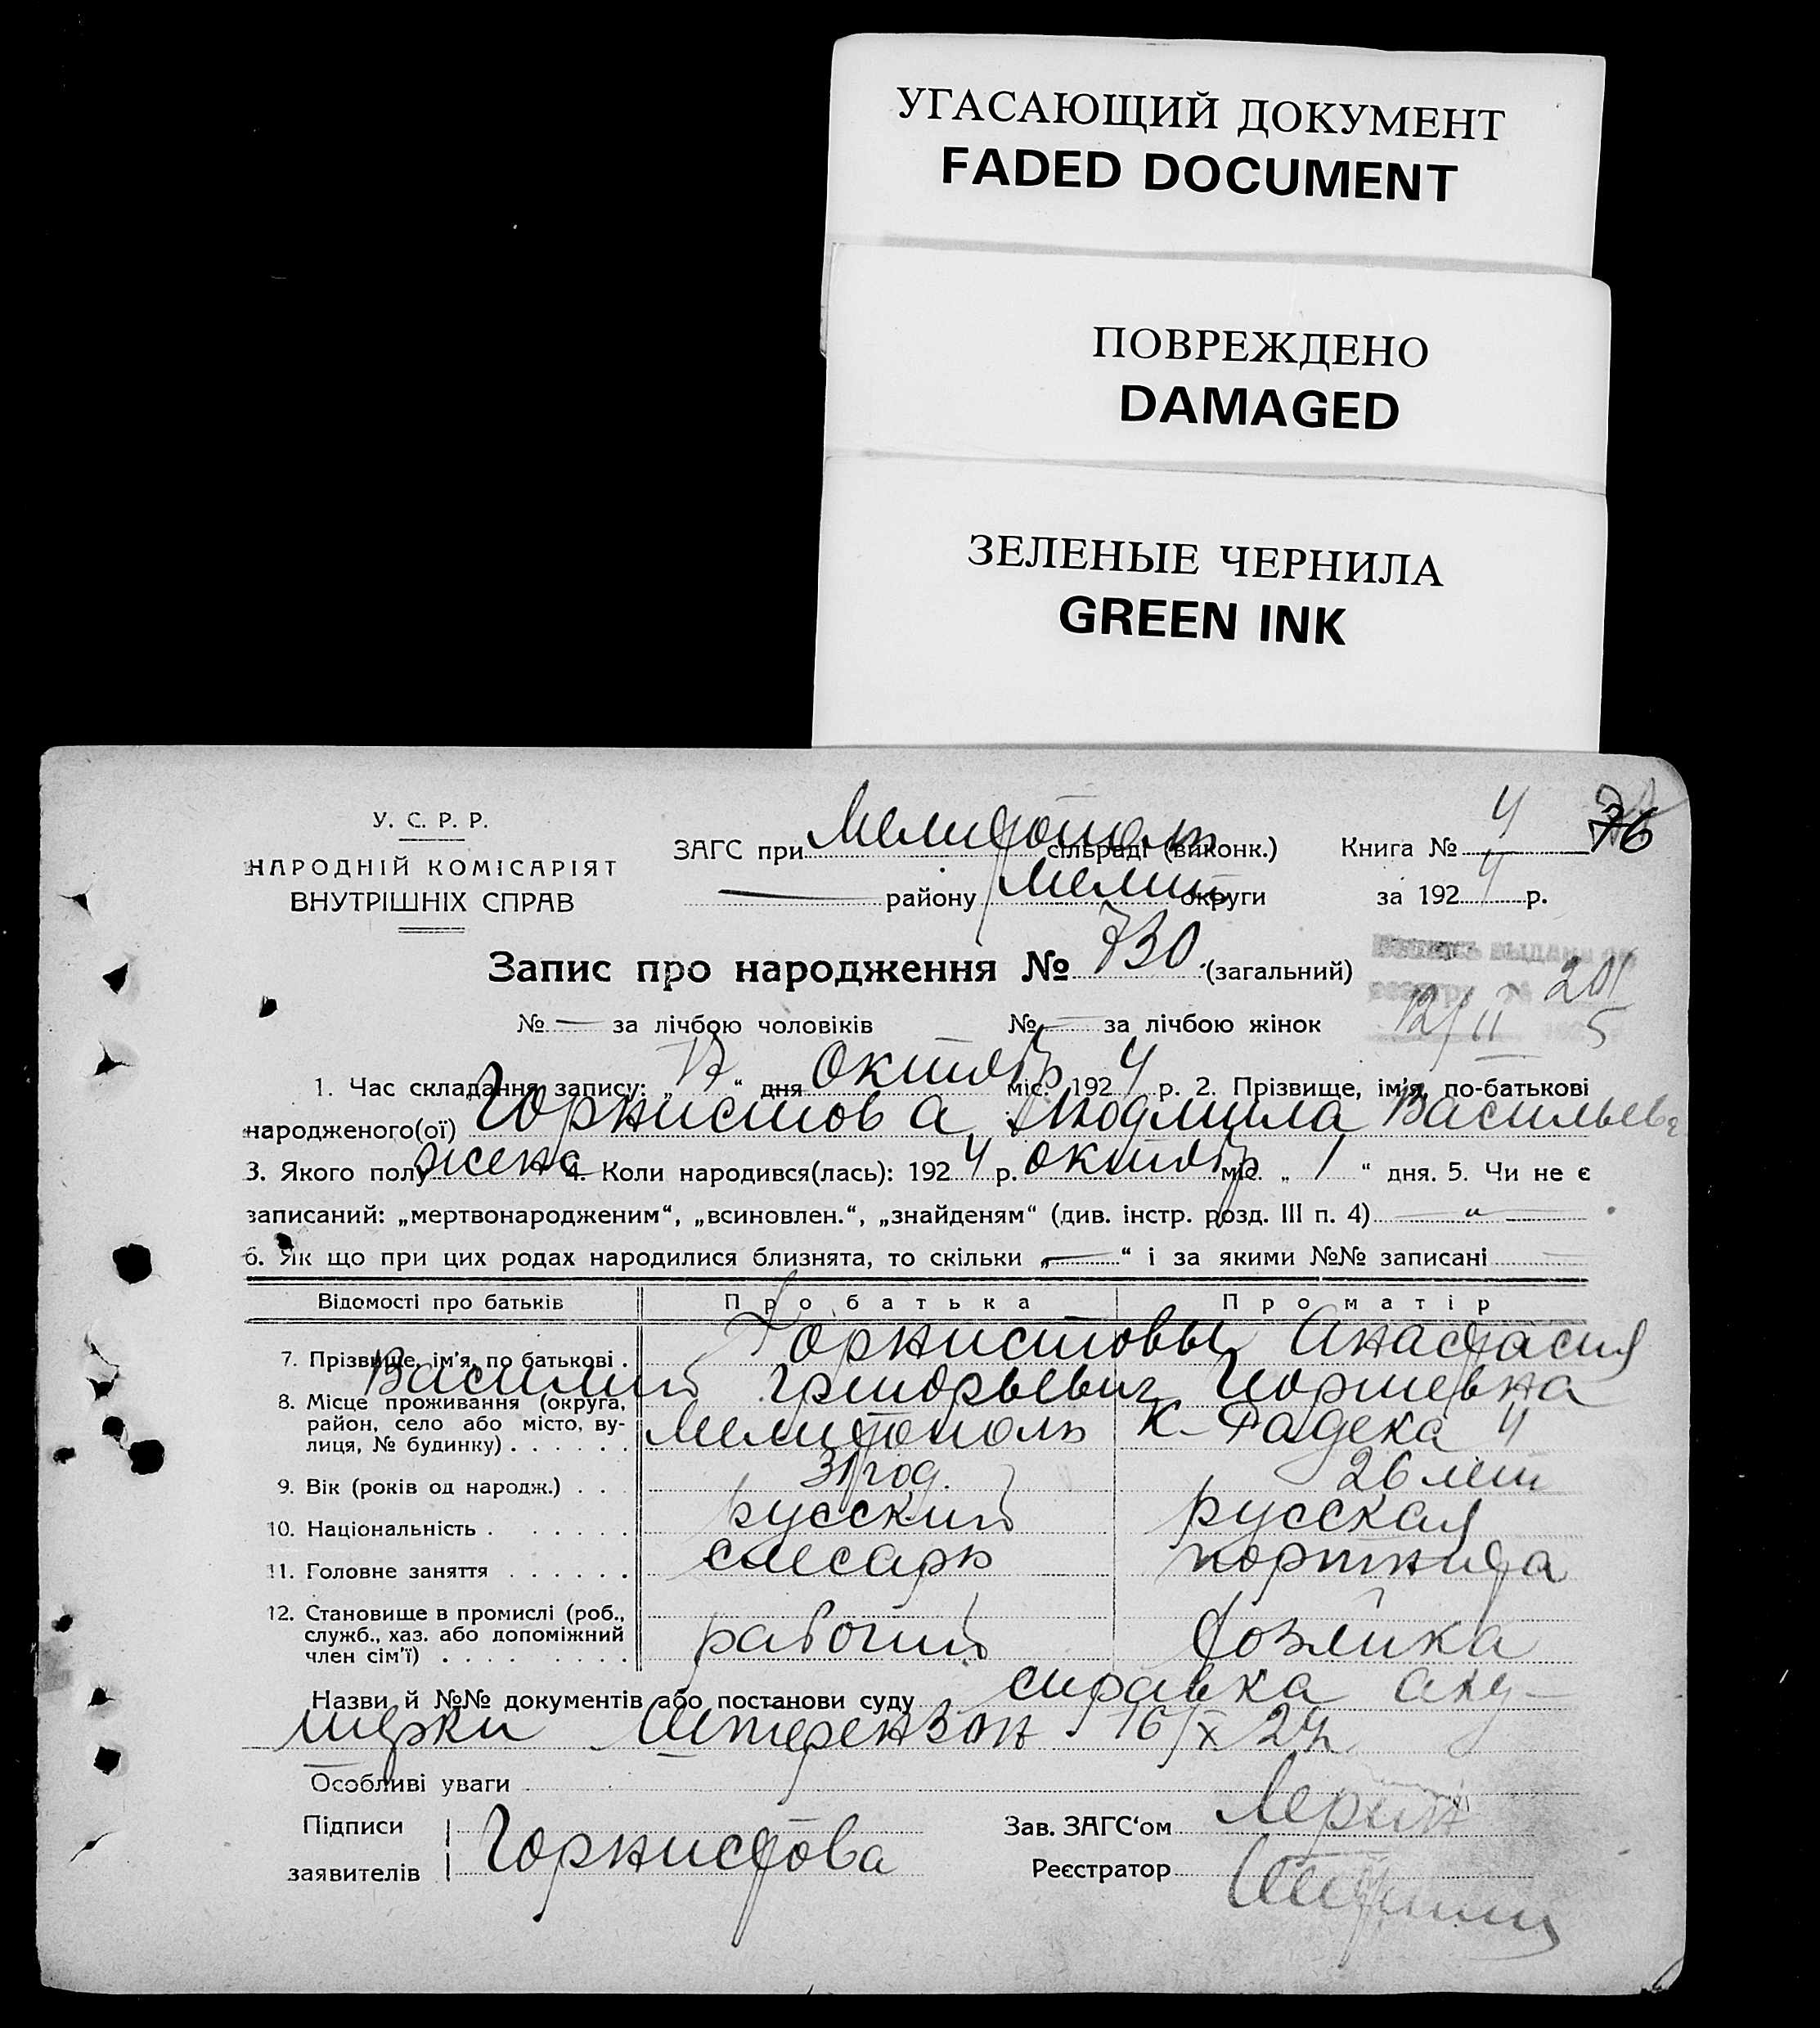 УГАСАЮЩИЙ ДОКУМЕНТ
FADED DOCUMENT
ПОВРЕЖДЕНО
DAMAGED
ЗЕЛЕНЫЕ ЧЕРНИЛА
GREEN INK
У. С. Р. Р.
НАРОДНІЙ КОМІСАРІЯТ
ВНУТРІШНІХ СПРАВ
ЗАГС при Мелитополь сільраді (виконк.) Книга № 4 76
району Мелит округи за 1924 р.
Запис про народження № 730 (загальний)
201
№ — за лічбою чоловіків № — за лічбою жінок 12/II 5
1. Час складання запису: „17“ дня октябр міс. 1924 р. 2. Прізвище, ім'я, по-батькові
народженого(ої) Горнистова Людмила Васильев
3. Якого полу женс 4. Коли народився(лась): 1924 р. октябр міс. „1“ дня. 5. Чи не є
записаний: „мертвонародженим“, „всиновлен.“, „знайденям“ (див. інстр. розд. III п. 4) — „ —
6. Як що при цих родах народилися близнята, то скільки „—“ і за якими №№ записані
Відомості про батьків Про батька Про матір
7. Прізвище, ім'я, по батькові . Горнистовы Анастасия
Василий Григорьевич
8. Місце проживання (округа,
район, село або місто, ву-
лиця, № будинку) . . . . . . Мелитополь К-Радека 4
9. Вік (років од народж.) . . . 31 год. 26 лет
10. Національність . . . . . . русский русская
11. Головне заняття . . . . . . слесарь портниха
12. Становище в промислі (роб.,
служб., хаз. або допоміжний
член сім'ї) . . . . . . . . . рабочий хозяйка
Назви й №№ документів або постанови суду справка аку-
шерки Штерензон 16/X 24
Особливі уваги
Підписи
заявителів Горнистова
Зав. ЗАГС'ом
Реєстратор